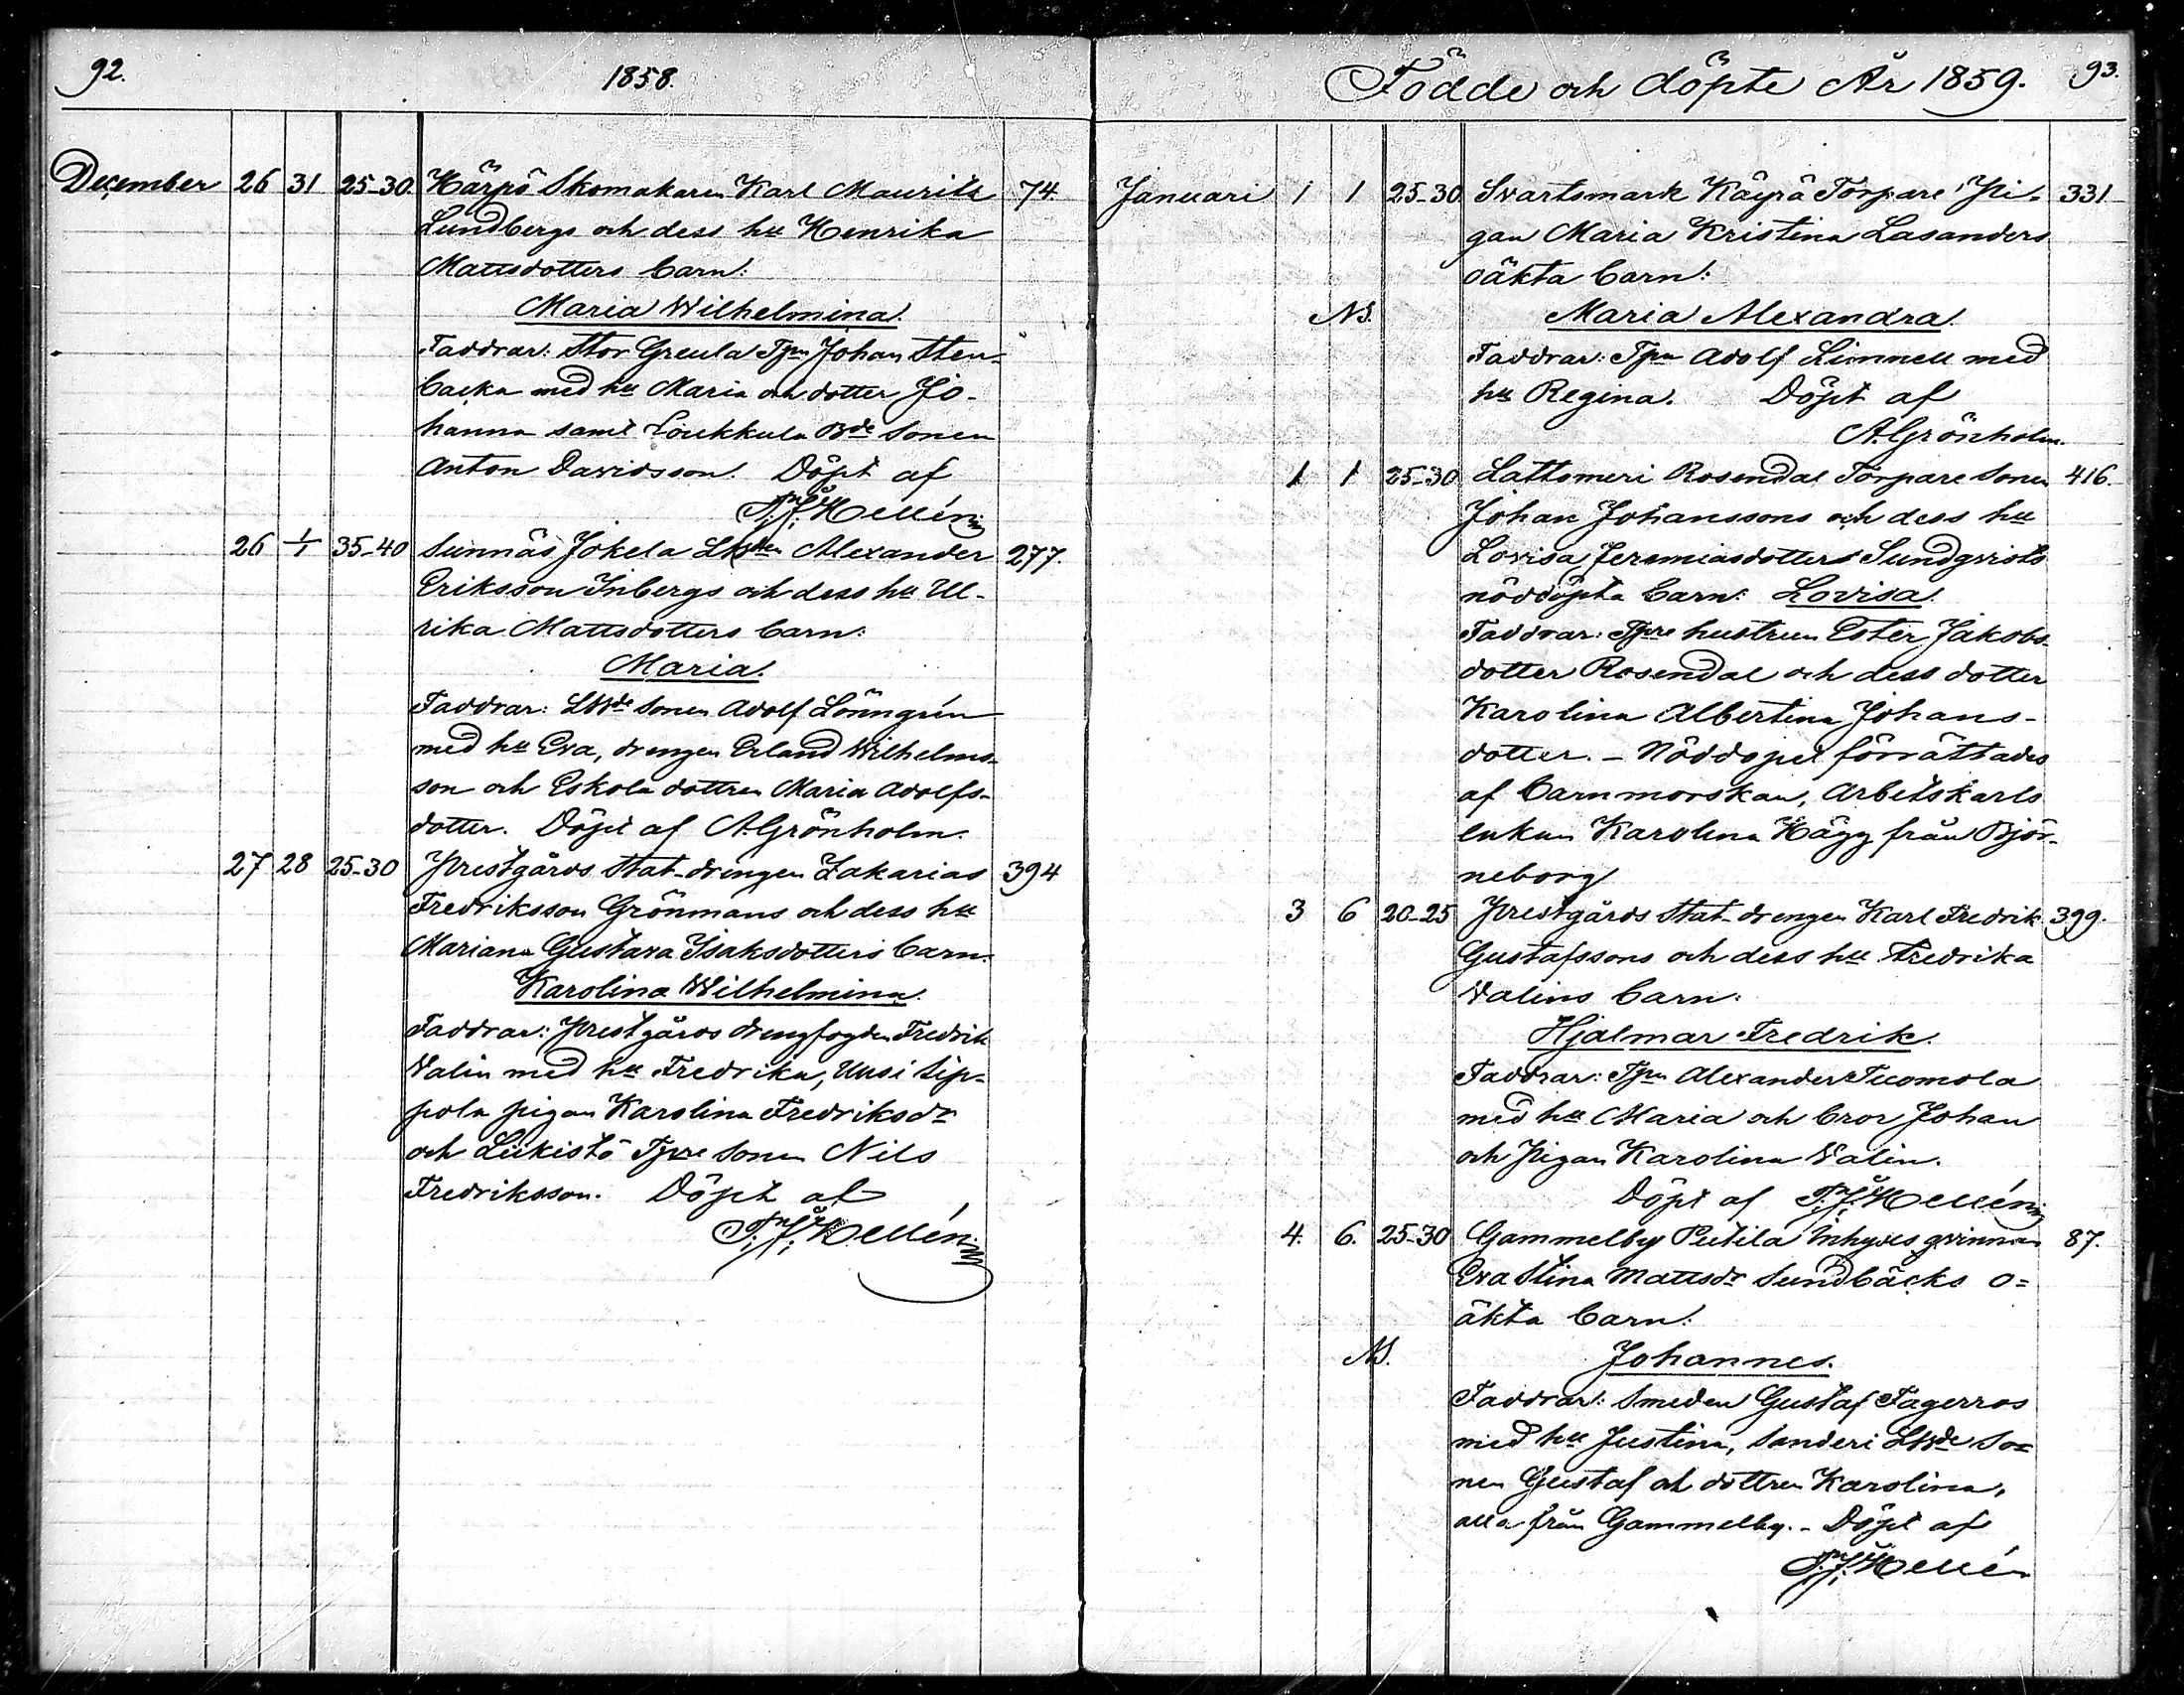 92.
1858.
December 26 31 25-30. Härpö Skomakaren Karl Maurits 74.
Lundbergs och dess hu Henrika
Mattsdotters barn:
Maria Wilhelmina.
Faddrar: Stor Greula Tpn Johan Sten-
backa med hu Maria och dotter Jo-
hanna samt Loukkula Bde Sonen
Anton Davidsson. Döpt af
Hellén
26 1/1 35-40 Sunnäs Jokela Alexander 277.
Eriksson Inbergs och dess hu Ul-
rika Mattsdotters barn:
Maria.
Faddrar: Sonen Adolf Lönngrén
med hu Eva, drengen Erland Wilhelms-
son och Eskola dottren Maria Adolfs-
dotter. Döpt af A.Grönholm.
27 28 25-30 Prestgårds Stat-drengen Zakarias 394
Fredriksson Grönmans och dess hu
Mariana Gustava Isaksdotters barn:
Karolina Wilhelmina.
Faddrar: Prestgårds drengfogden Fredrik
Valin med hu Fredrika, Uusi Sip-
pola pigan Karolina Fredriksdr
och Liikistö Tpre Sonen Nils
Fredriksson. Döpt af
Hellén
Födde och döpte År 1859. 93.
Januari 1 1 25-30 Svartsmark Käyrä Torpare Pi- 331
gan Maria Kristina Lasanders
oäkta barn:
NB. Maria Alexandra.
Faddrar: Tpn Adolf Limnell med
hu Regina. Döpt af
A.Grönholm.
1 1 25-30 Lattomeri Rosendal Torpare Sonen 416.
Johan Johanssons och dess hu
Lovisa Jeremiasdotters Sundqvists
nöddöpta barn: Lovisa.
Faddrar: Tpre hustrun Ester Jakobs-
dotter Rosendal och dess dotter
Karolina Albertina Johans-
dotter. - Nöddopet förrättades
af barnmorskan, Arbetskarls
enkan Karolina Hägg från Björ-
neborg
3 6 20-25 Prestgårds Stat-drengen Karl Fredrik 399.
Gustafssons och dess hu Fredrika
Valins barn:
Hjalmar Fredrik.
Faddrar: Tpn Alexander Tuomola
med hu Maria och bror Johan
och Pigan Karolina Valin.
Döpt af Hellén
4. 6. 25-30 Gammelby Pietilä Inhyses qvinnan 87.
Eva Stina Mattsdr Sundbäcks o=
äkta barn:
NB. Johannes.
Faddrar: Smeden Gustaf Fagerros
med hu Justina, Sanderi So=
nen Gustaf och dottren Karolina,
alla från Gammelby. - Döpt af
Hellén